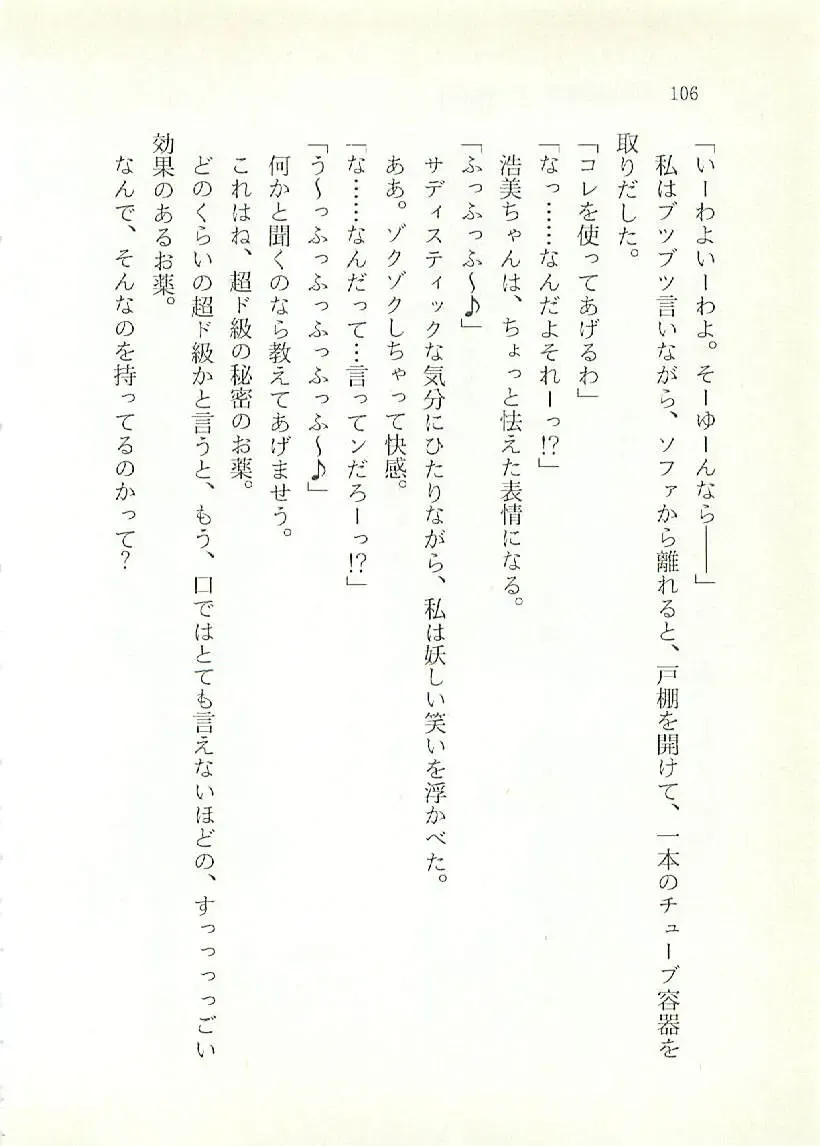 106
「いーわよいーわよ。そーゆーんなら――」
私はブツブツ言いながら、ソファから離れると、戸棚を開けて、一本のチューブ容器を
取りだした。
「コレを使ってあげるわ」
「なっ……なんだよそれーっ!?」
浩美ちゃんは、ちょっと怯えた表情になる。
「ふっふっふ～♪」
サディスティックな気分にひたりながら、私は妖しい笑いを浮かべた。
ああ。ゾクゾクしちゃって快感。
「な……なんだって…言ってンだろーっ!?」
「う～っふっふっふっふっふ～♪」
何かと聞くのなら教えてあげませう。
これはね、超ド級の秘密のお薬。
どのくらいの超ド級かと言うと、もう、口ではとても言えないほどの、すっっっっごい
効果のあるお薬。
なんで、そんなのを持ってるのかって?